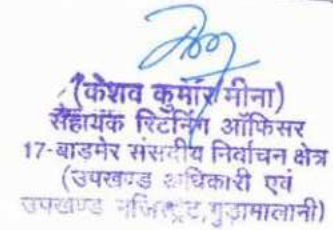 (केशव कुमार मीना)
सहायक रिटर्निंग ऑफिसर
17-बाड़मेर संसदीय निर्वाचन क्षेत्र
(उपखण्ड अधिकारी एवं
उपखण्ड मजिस्ट्रेट,गुड़ामालानी)